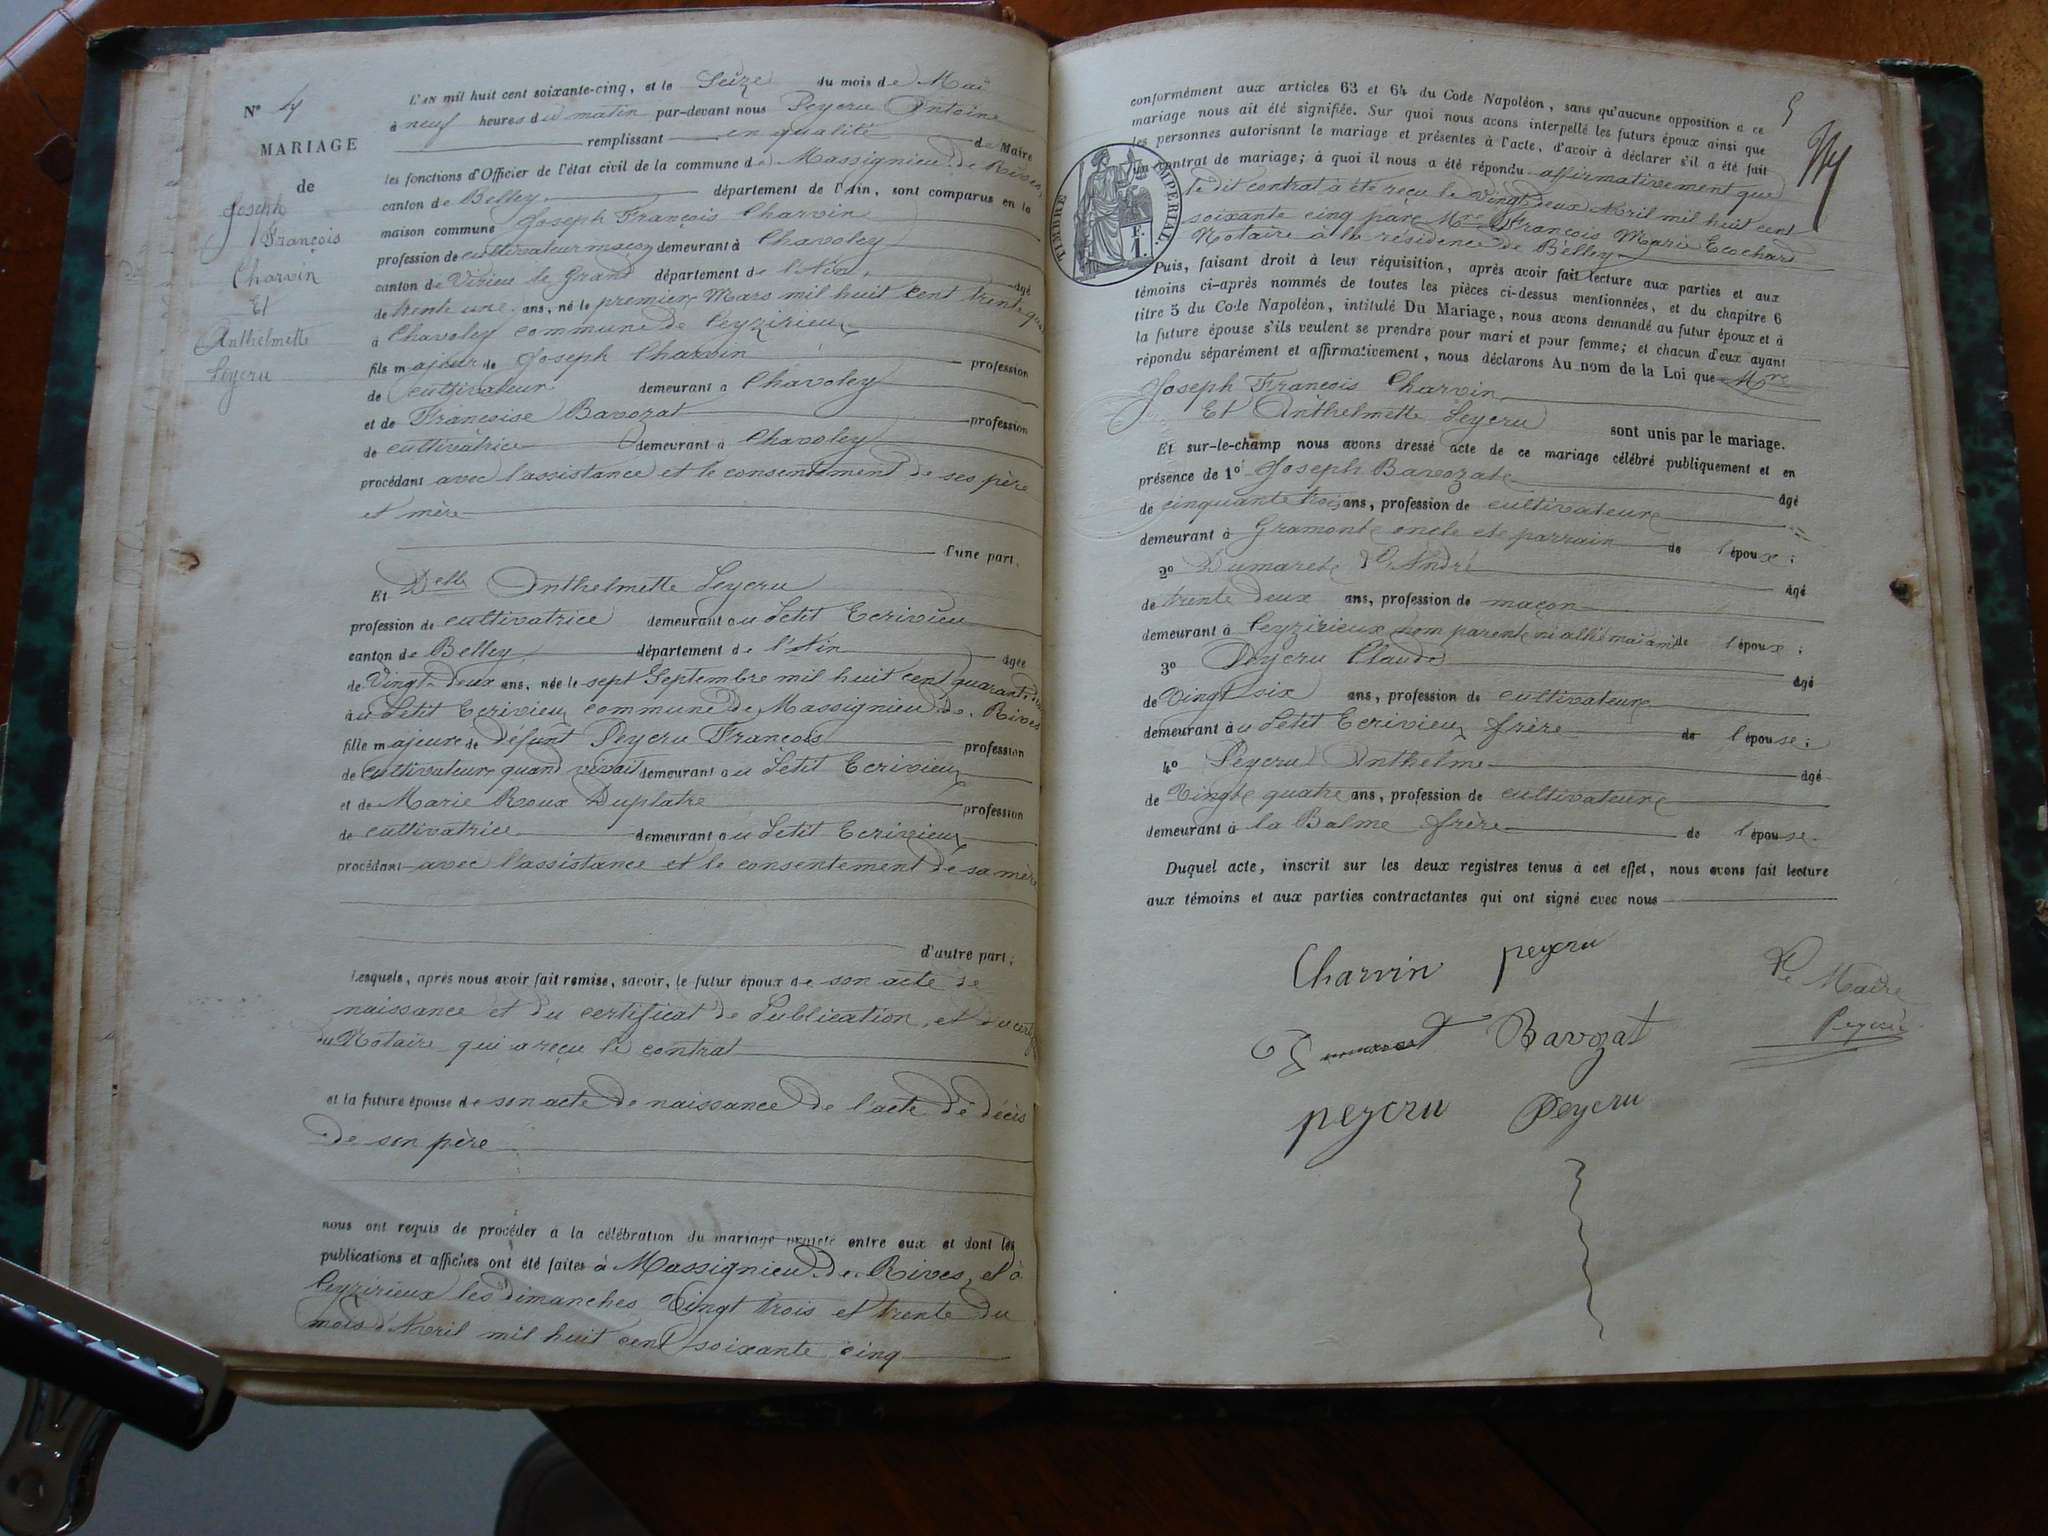 N° 4
MARIAGE
de
Joseph
François
Charvin
Et
Anthelmette
Peycru
L'AN mil huit cent soixante-cinq, et le Seize du mois de Mai
à neuf heures du matin par-devant nous Peycru Antoine
remplissant en qualité de Maire
les fonctions d'Officier de l'état civil de la commune de Massignieu de Rives,
canton de Belley, département de l'Ain, sont comparus en la
maison commune Joseph François Charvin
profession de cultivateur maçon demeurant à Chavoley
canton de Virieu le Grand département de l'Ain, âgé
de trente une ans, né le premier Mars mil huit cent trente quatre
à Chavoley commune de Ceyzirieux
fils majeur de Joseph Charvin profession
de cultivateur demeurant à Chavoley
et de Françoise Bavozat profession
de cultivatrice demeurant à Chavoley
procédant avec l'assistance et le consentement de ses père
et mère
l'une part.
Et Delle Anthelmette Peycru
profession de cultivatrice demeurant au Petit Ecrivieu
canton de Belley département de l'Ain âgée
de Vingt-deux ans, née le sept Septembre mil huit cent quarante deux
au Petit Ecrivieux commune de Massignieu de Rives
fille majeure de défunt Peycru François profession
de cultivateur quand vivait demeurant au Petit Ecrivieux
et de Marie Roux Duplatre profession
de cultivatrice demeurant au Petit Ecrivieux
procédant avec l'assistance et le consentement de sa mère
d'autre part;
Lesquels, après nous avoir fait remise, savoir, le futur époux de son acte de
naissance et du certificat de Publication, et du
du Notaire qui a reçu le contrat
et la future épouse de son acte de naissance de l'acte de décès
de son père
nous ont requis de procéder à la célébration du mariage projeté entre eux et dont les
publications et affiches ont été faites à Massignieu de Rives, et à
Ceyzirieux les dimanches Vingt trois et trente du
mois d'Avril mil huit cent soixante cinq
5
conformément aux articles 63 et 64 du Code Napoléon, sans qu'aucune opposition à ce
mariage nous ait été signifiée. Sur quoi nous avons interpellé les futurs époux ainsi que
les personnes autorisant le mariage et présentes à l'acte, d'avoir à déclarer s'il a été fait
contrat de mariage; à quoi il nous a été répondu affirmativement que
le dit contrat à été reçu le Vingt deux Avril mil huit cent
soixante cinq par Mre François Marie Ecochard
Notaire à la résidence de Belley
TIMBRE IMPÉRIAL.
F.
1.
Puis, faisant droit à leur réquisition, après avoir fait lecture aux parties et aux
témoins ci-après nommés de toutes les pièces ci-dessus mentionnées, et du chapitre 6
titre 5 du Code Napoléon, intitulé Du Mariage, nous avons demandé au futur époux et à
la future épouse s'ils veulent se prendre pour mari et pour femme; et chacun d'eux ayant
répondu séparément et affirmativement, nous déclarons Au nom de la Loi que Mre
Joseph François Charvin
Et Anthelmette Peycru sont unis par le mariage.
Et sur-le-champ nous avons dressé acte de ce mariage célébré publiquement et en
présence de 1° Joseph Bavozat âgé
de cinquante trois ans, profession de cultivateur
demeurant à Gramont oncle et parrain de l'époux;
2° Dumaret André âgé
de trente deux ans, profession de maçon
demeurant à Ceyzirieux non parent ni allié mai ami de l'époux;
3° Peycru Claude âgé
de Vingt six ans, profession de cultivateur
demeurant au Petit Ecrivieux frère de l'épouse;
4° Peycru Anthelme âgé
de Vingt quatre ans, profession de cultivateur
demeurant à la Balme frère de l'épouse.
Duquel acte, inscrit sur les deux registres tenus à cet effet, nous avons fait lecture
aux témoins et aux parties contractantes qui ont signé avec nous
Charvin peycru
Le Maire
Peycru
Dumaret Bavozat
peycru Peycru